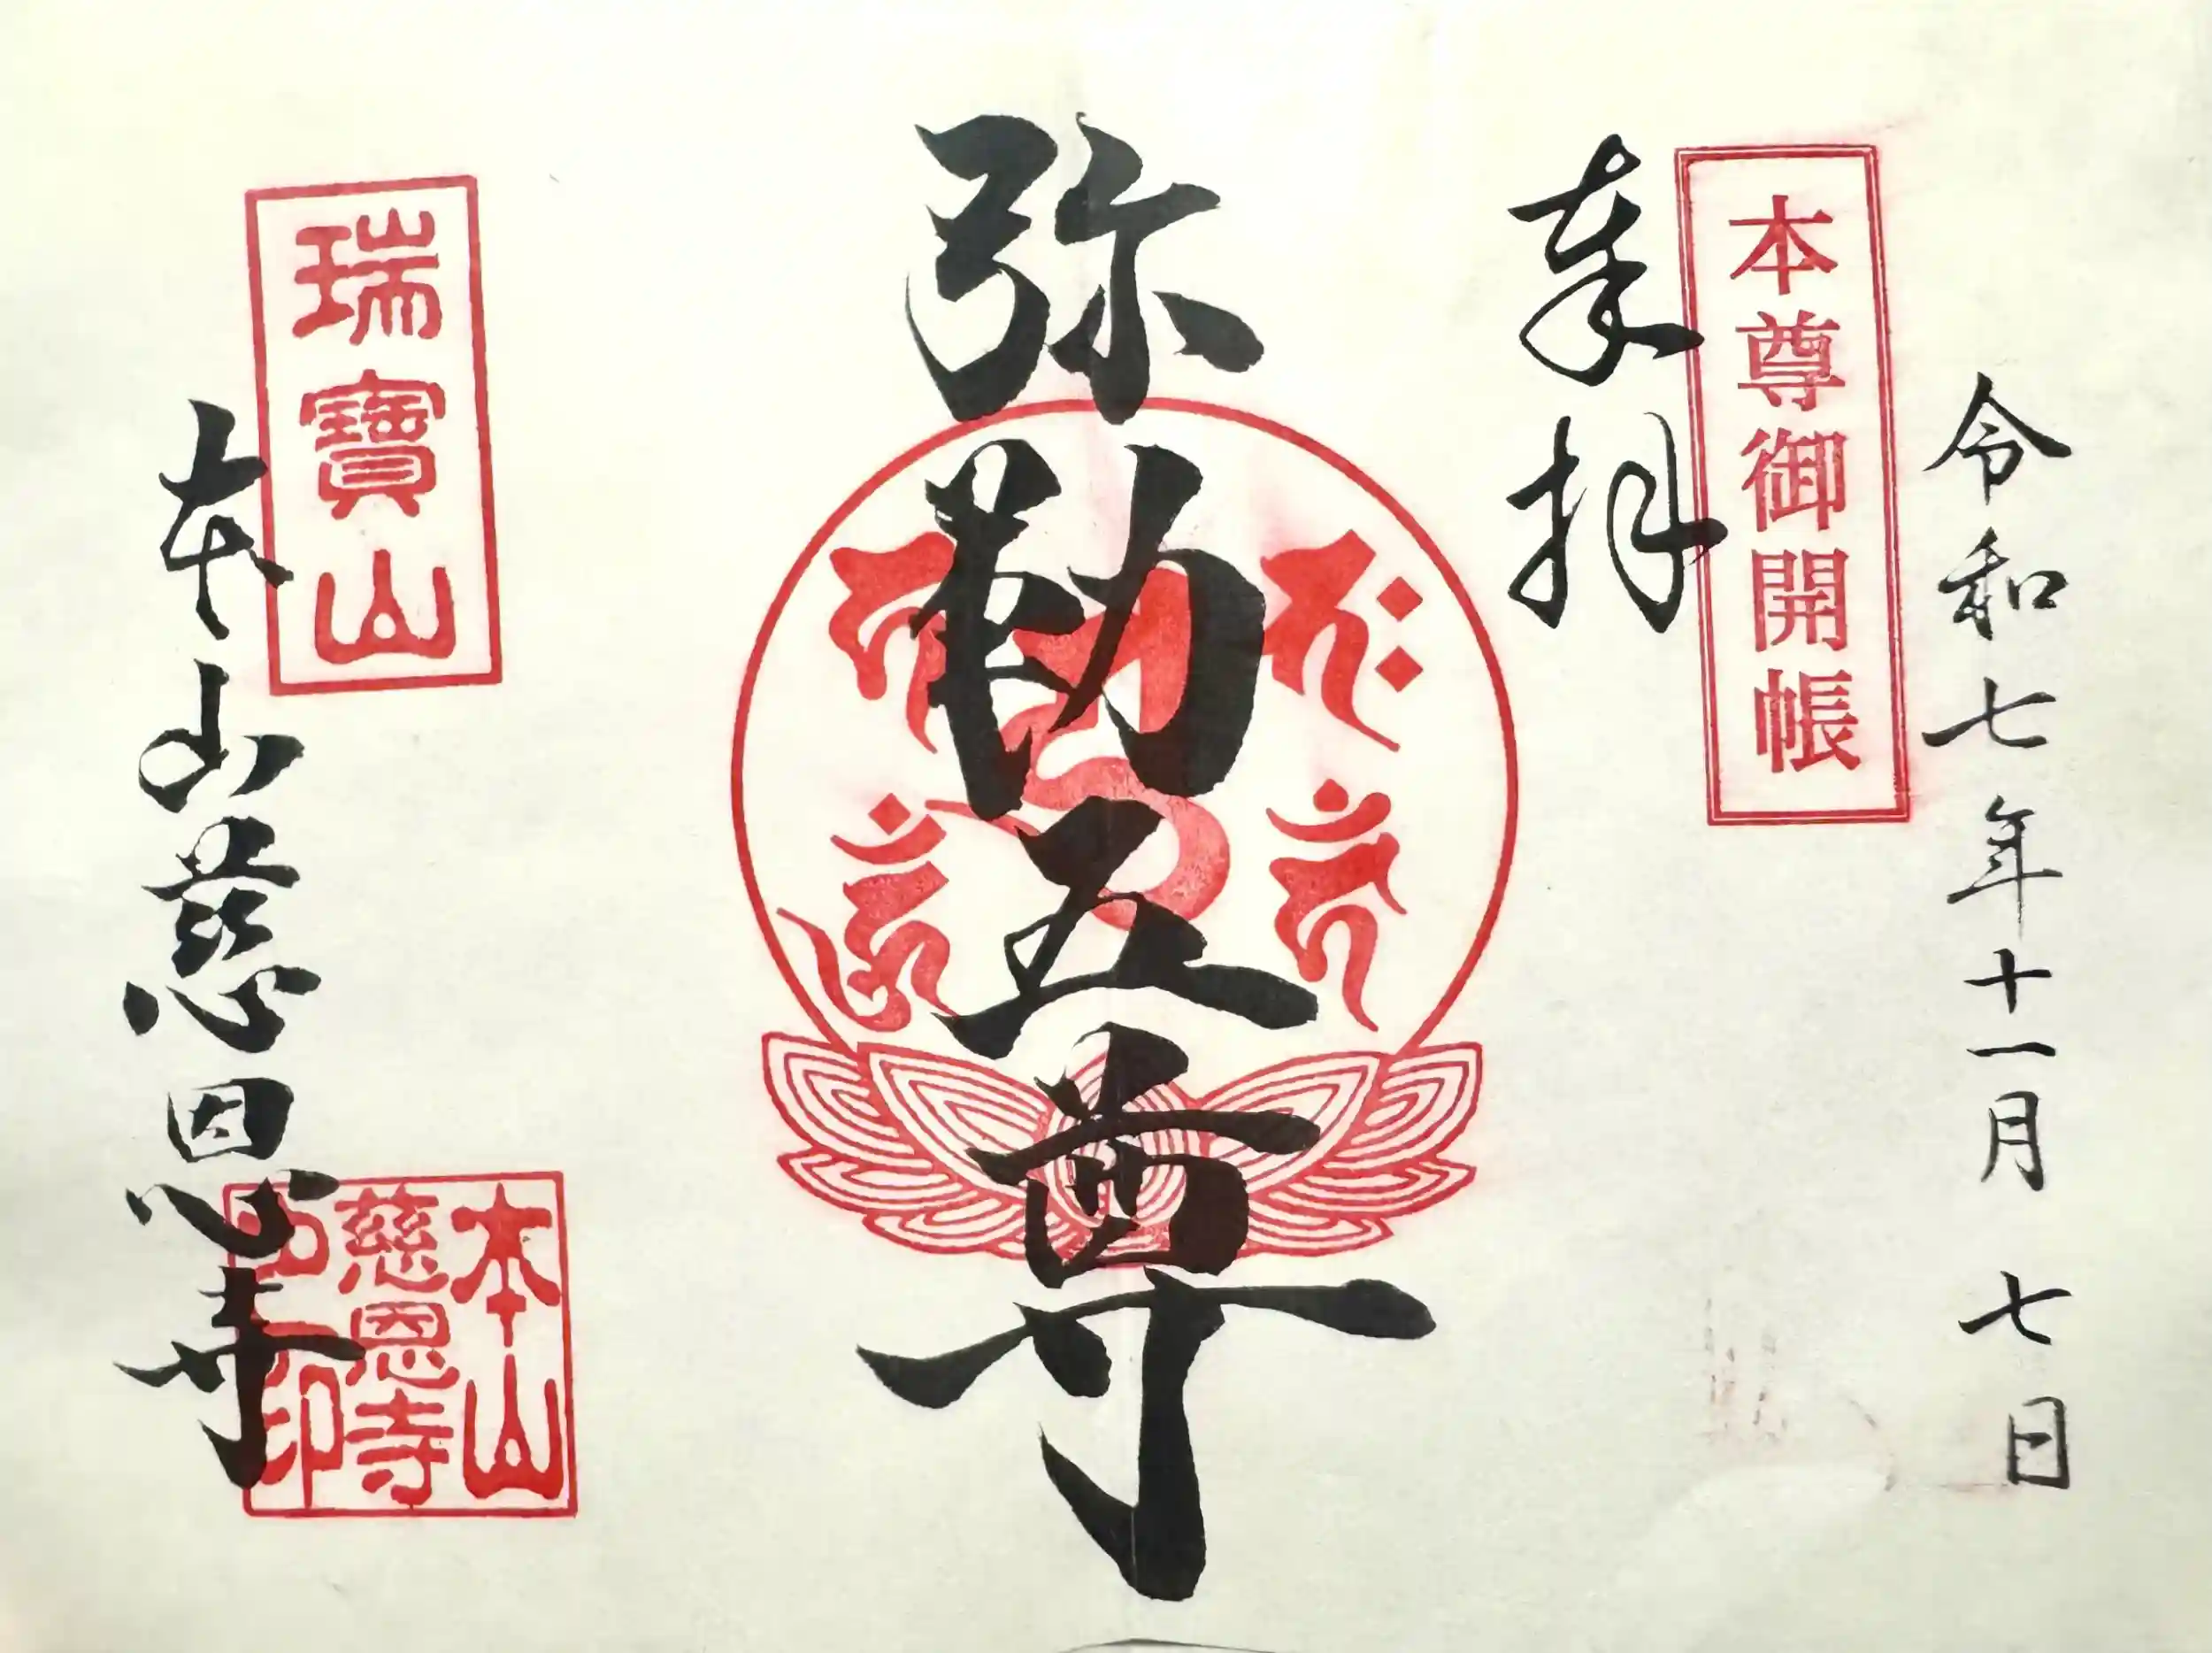 令和七年十一月七日
本尊御開帳
奉拝
弥勒五尊
瑞寳山
本山慈恩寺
本山
慈恩寺
印